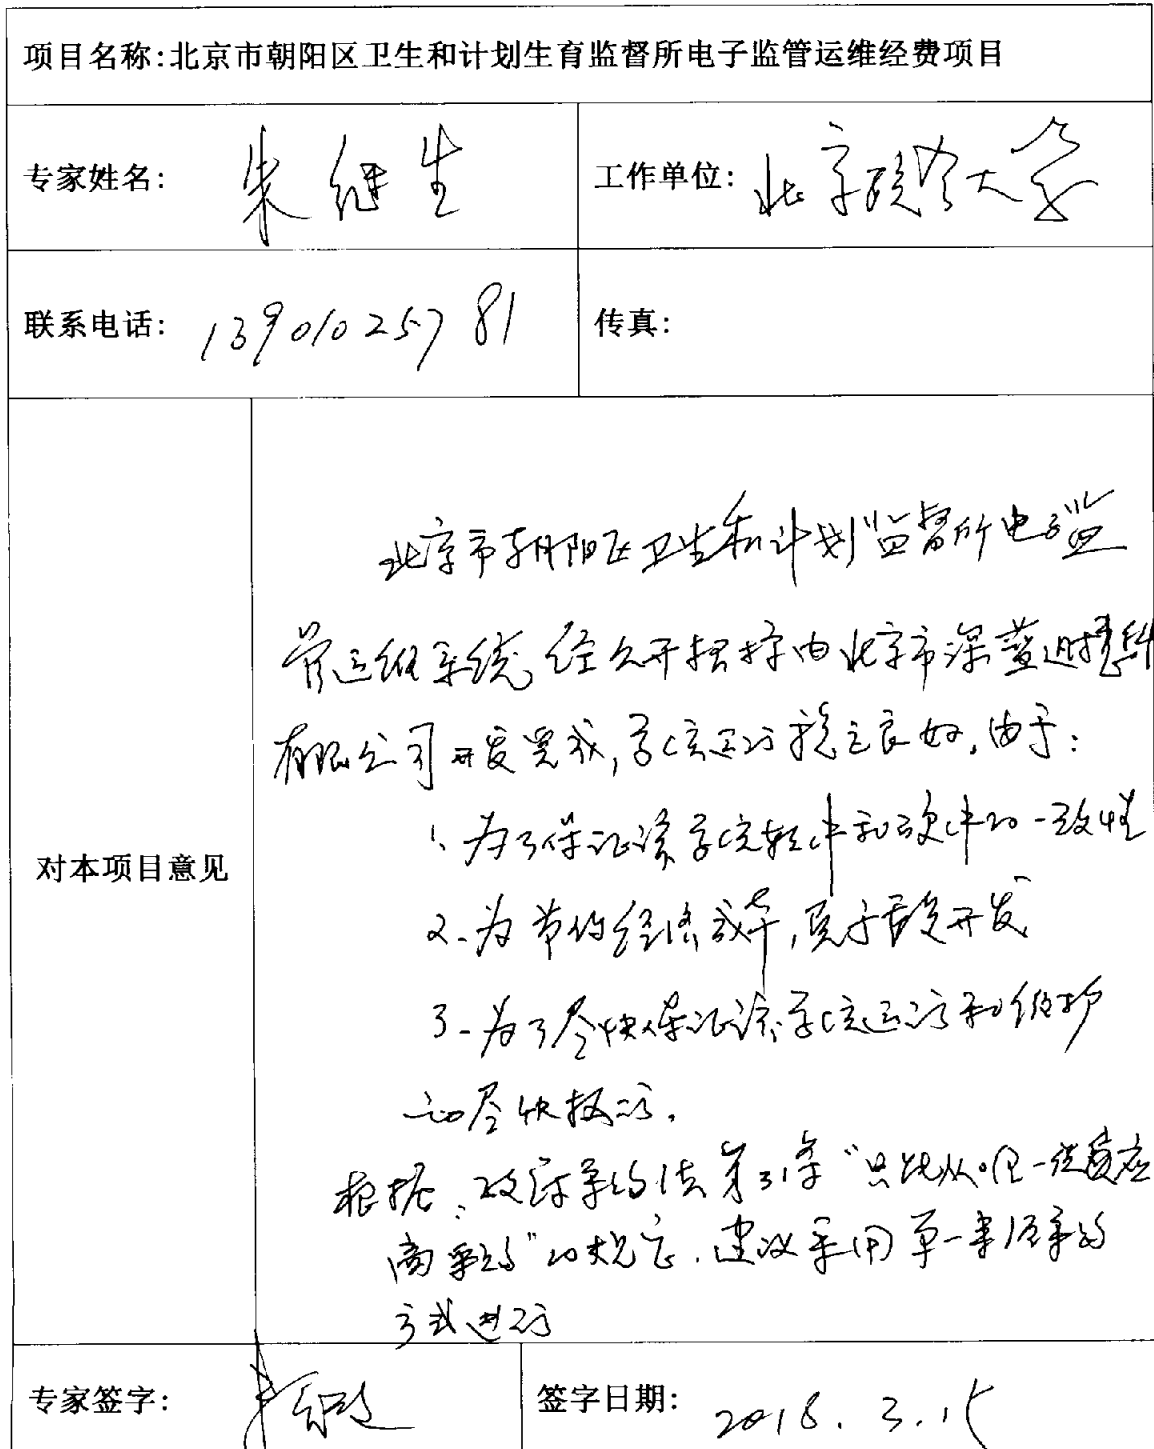 项目名称:北京市朝阳区卫生和计划生育监督所电子监管运维经费项目
专家姓名: 朱继生 工作单位: 北京联合大学
联系电话: 13901025781 传真:
对本项目意见
北京市朝阳区卫生和计划监督所电子监
管运维系统, 经公开招标由北京市深蓝
有限公司开发完成,系统运行稳定良好。由于:
1、为了保证该系统软件和硬件的一致性
2、为节约经济成本,免于重复开发
3、为了尽快保证该系统运行和维护
的尽快执行。
根据:政府采购法第31条“只能从唯一供应
商采购”的规定,建议采用单一来源采购
方式进行
专家签字: 签字日期: 2018.3.15